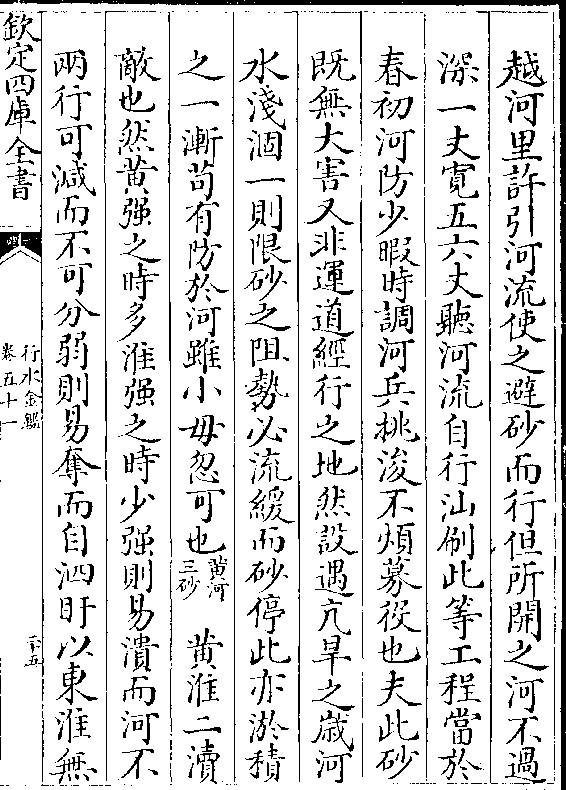 越河里許引河流使之避砂而行但所開之河不過
深一丈寛五六丈聽河流自行汕刷此等工程當於
春初河防少暇時調河兵挑浚不煩募役也夫此砂
既無大害又非運道經行之地然設遇亢旱之歲河
水淺涸一則限砂之阻勢必流緩而砂停此亦淤積
之一漸茍有防於河雖小毋忽可也黄河三砂 黄淮二瀆
敵也然黄强之時多淮强之時少强則易潰而河不
兩行可減而不可分弱則易奪而自泗盱以東淮無
欽定四庫全書
行水金鑑
卷五十一
二十五